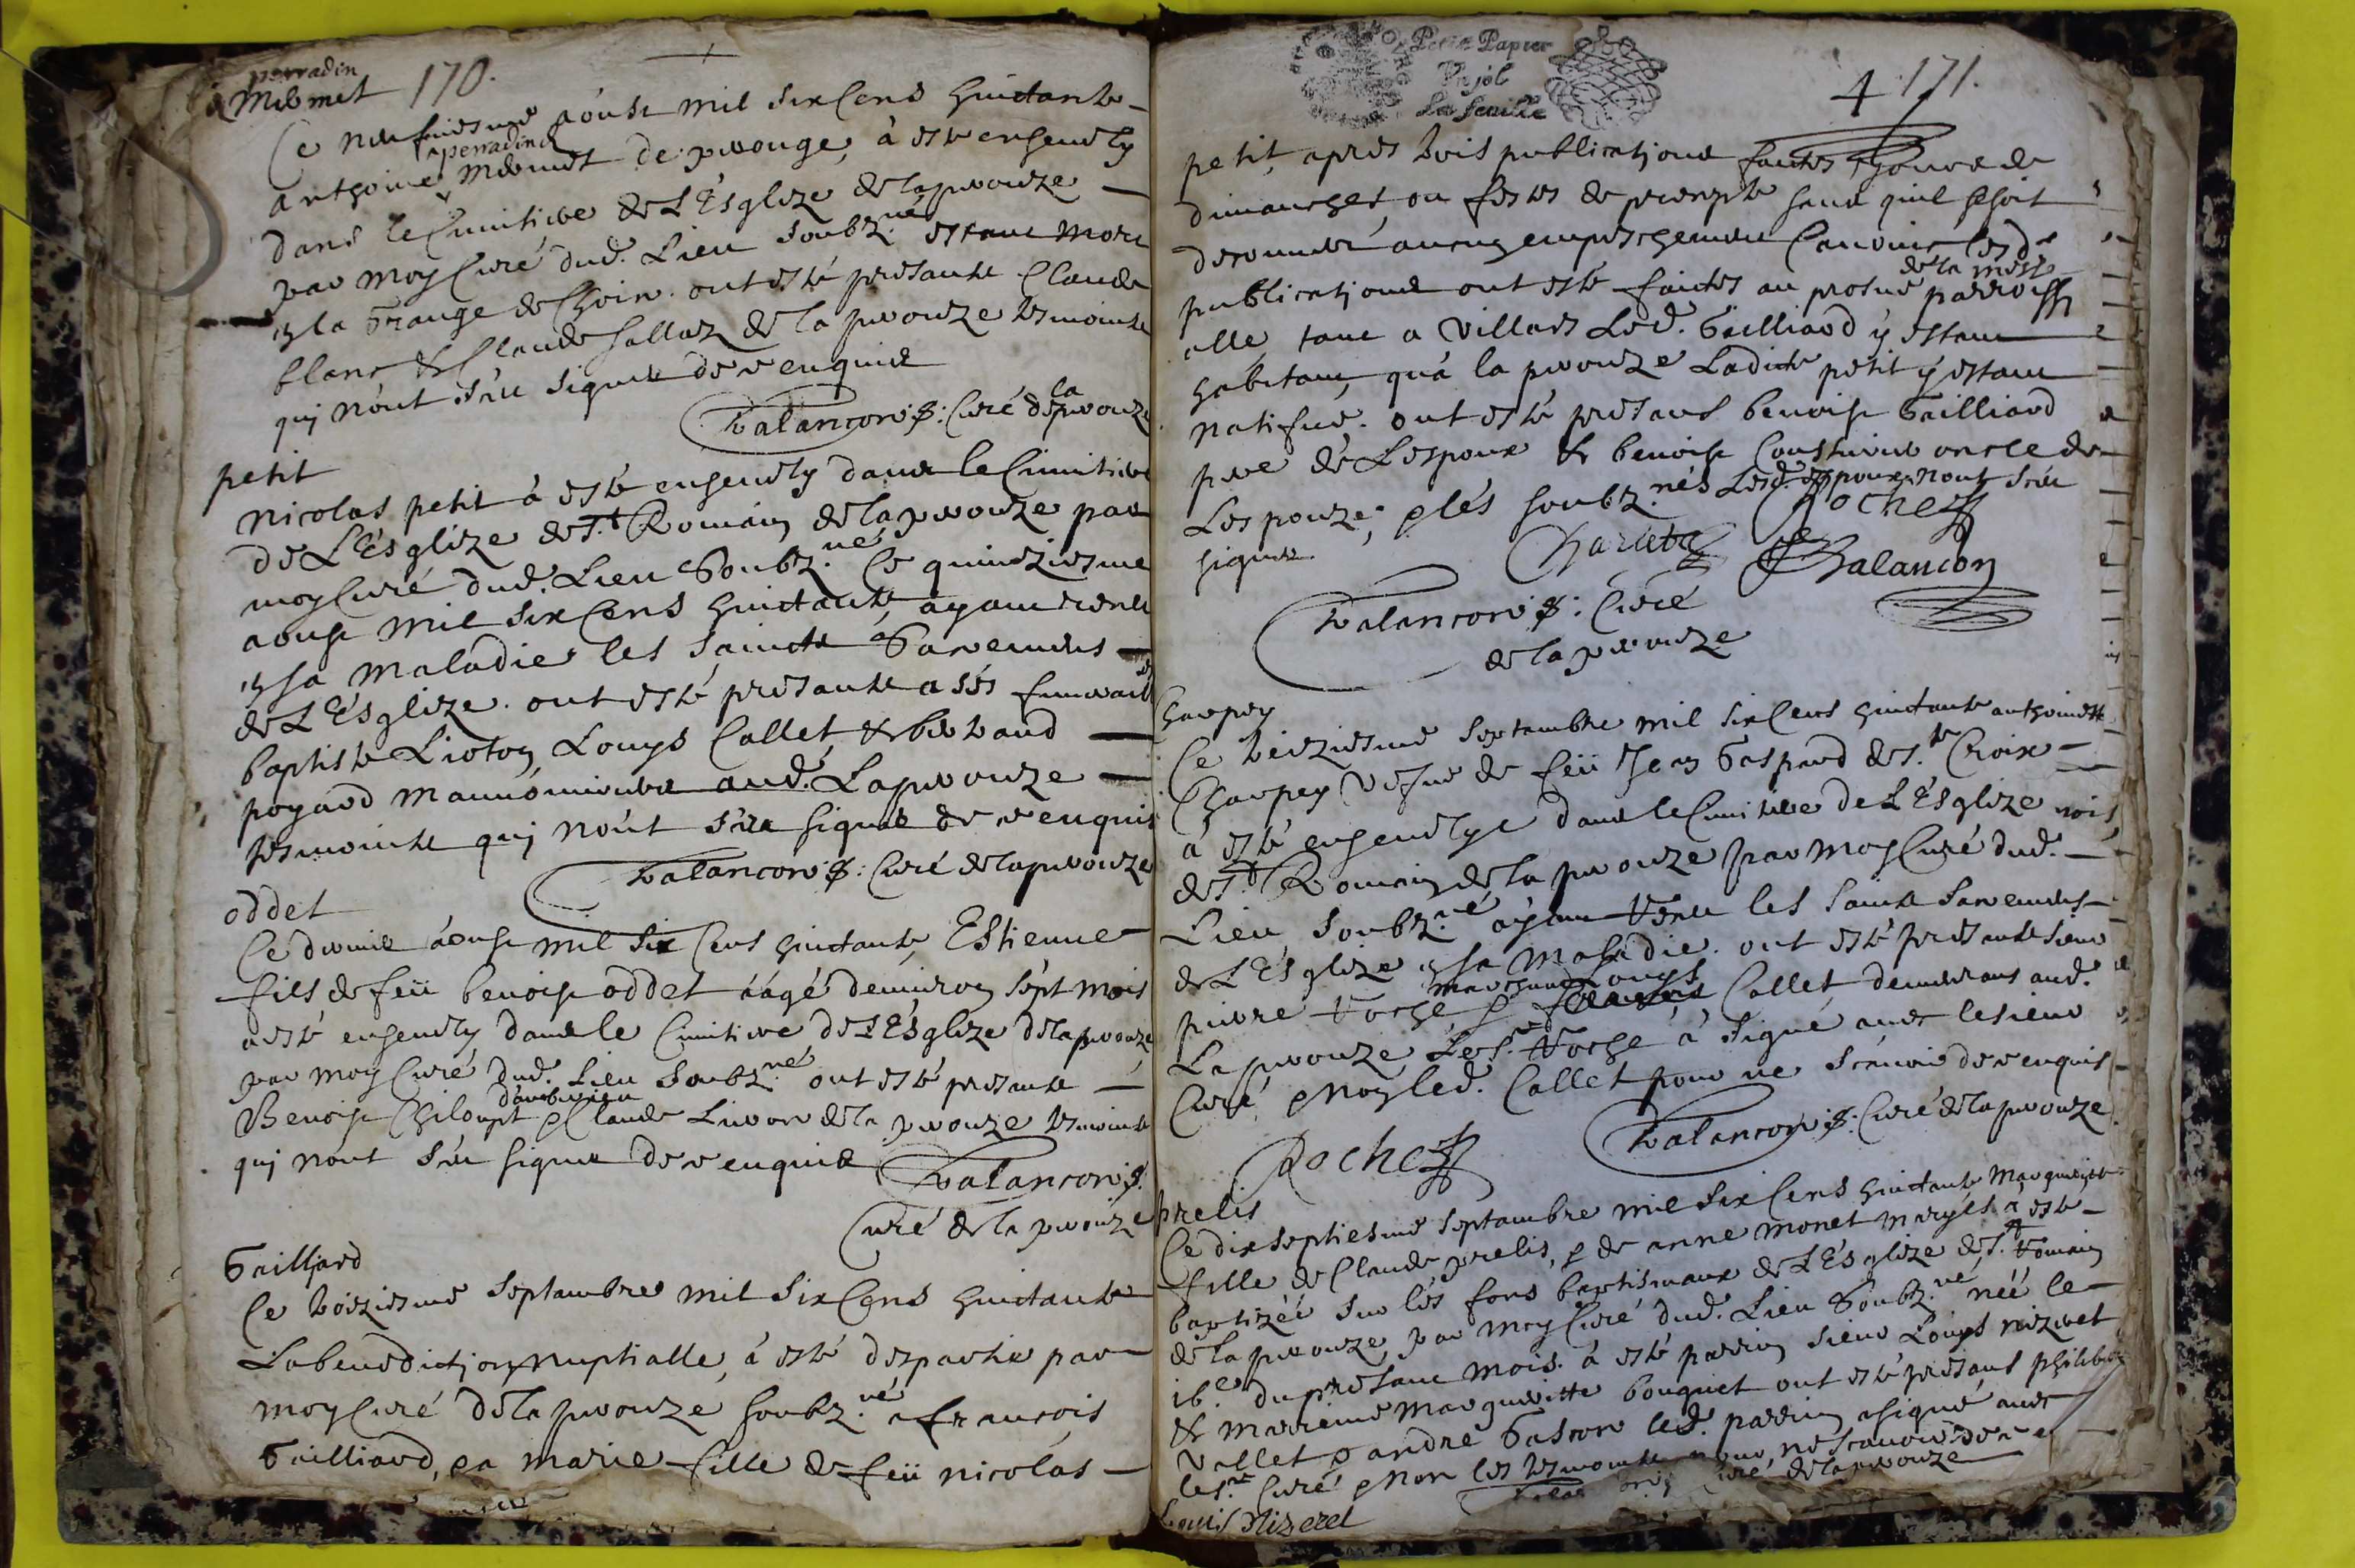 perradin
Mermet 170.
Ce neufuiesme aoust mil six Cens huictante
anthoine perradin Mermet de perouge, à esté enseuely
dans le Cimitiere de L'Esglize de la perouze
par moy Curé dud. Lieu soubz.né estant mort
en la Grange de Choin. ont esté presants Claude
blanc & Claude Sallaz de la perouze tesmoins
qui n'ont sceu signer de ce enquis
Balancon p: Curé de la perouze
petit
Nicolas petit à esté enseuely dans le Cimitiere
de L'Esglize de St Romain de la perouze par
moy Curé dud. Lieu soubz.né Ce quinziesme
aoust mil six Cens huictante, ayant receu
en sa maladie les saincts sacremens
de L'Esglize. ont esté presants a ses funerailles
baptiste Lioton Louys Collet & bertrand
poyard manouuriers aud. Laperouze
tesmoins qui n'ont sceu signer de ce enquis
Balancon p: Curé de la perouze
oddet
Ce dernier aoust mil six Cens huictante, Estienne
fils de feü benoist oddet aagé d'enuiron sept mois
a esté enseuely dans le Cimitiere de L'Esglize de la perouze
par moy Curé dud. Lieu soubz.né ont esté presants
Benoist Chiloupt & Claude Liuore de la perouze tesmoins
qui n'ont sceu signer de ce enquis Balancon p.
Curé de la perouze
Gailliard
Ce treiziesme Septambre mil six Cens huictante
La benediction nuptialle, à esté despartie par
moy Curé de la perouze soubz.né a françois
Gailliard, & a marie fille de feü nicolas
Petit Papier
Un sol
La feuille
4 171.
petit, apres trois publications faictes a jours de
dimanches, ou festes de precepte sans qu'il se soit
descouuert aucun empeschement Canonic lesd.
publications ont esté faictes au prosne de la messe parroissi
alle tant a Villars Led. Gailliard y estant
habitant, qu'à la perouze Ladicte petit y estant
natifue. ont esté presans benoist Gailliard
pere de L'espoux & benoist oncle de
L'espouze, & les soubz.nés Lesd. espoux n'ont sceu
signer Roche
Balancon
Balancon p: Curé
de la perouze
Charpey
Ce treiziesme Septambre mil six Cens huictante anthoinette
Charpey vefue de feü Jean Gaspard de Ste Croix
à esté enseuelye dans le Cimitiere de L'Esglize
de St Romain de la perouze par moy Curé dud.
Lieu soubz.né ayant receu les saincts sacremens
de L'Esglize en sa maladie. ont esté presants sieur
pierre Roche marchand & Louys Collet demeurans aud.
La perouze, Led. sr Roche à signé auec le sieur
Curé, & non led. Collet pour ne sçauoir de ce enquis
Roche Balancon p: Curé de la perouze
prelis
Ce dixseptiesme septambre mil six Cens huictante Marguerite
fille de Claude prelis, & de anne monet maryés à esté
baptizée sur les fons baptismaux de L'Esglize de St Romain
de la perouze, par moy Curé dud. Lieu soubz.né, née le
16e du present mois. à esté parrin sieur Louys nizeret
& marrine Margueritte bouquet ont esté presans philibert
vallet & andré Gascon led. parrin a signé auec
led. sr Curé & non les tesmoins pour ne scauoir de ce e
Curé de la perouze
Louis Nizeret